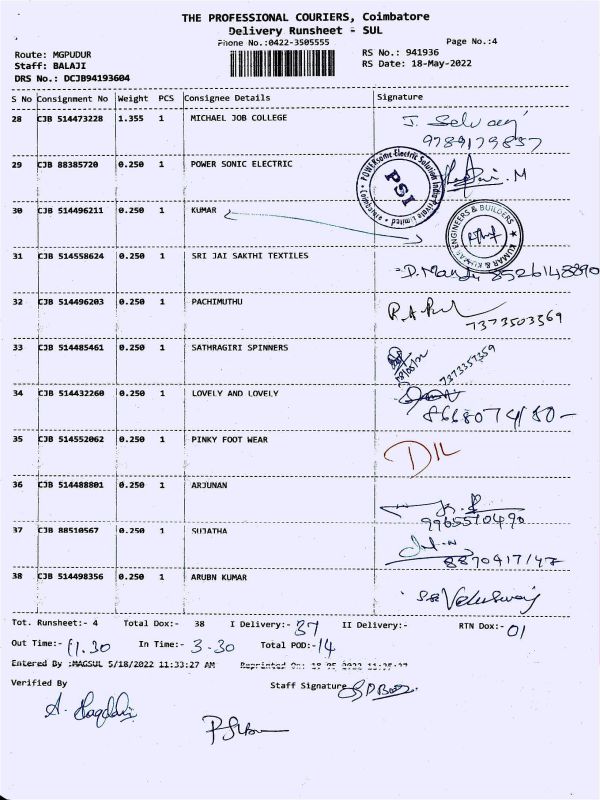 THE PROFESSIONAL COURIERS, Coimbatore
Delivery Runsheet - SUL
Phone No.:0422-3505555
Page No.:4
Route: MGPUDUR
RS No.: 941936
Staff: BALAJI
RS Date: 18-May-2022
DRS No.: DCJB94193604
S No Consignment No Weight PCS Consignee Details Signature
28 CJB 514473228 1.355 1 MICHAEL JOB COLLEGE
9789179837
29 CJB 88385720 0.250 1 POWER SONIC ELECTRIC
PSI
30 CJB 514496211 0.250 1 KUMAR
KUMAR & KUMAR ENGINEERS & BUILDERS
31 CJB 514558624 0.250 1 SRI JAI SAKTHI TEXTILES
8526148890
32 CJB 514496203 0.250 1 PACHIMUTHU
7373503569
33 CJB 514485461 0.250 1 SATHRAGIRI SPINNERS
34 CJB 514432260 0.250 1 LOVELY AND LOVELY
35 CJB 514552062 0.250 1 PINKY FOOT WEAR
DIL
36 CJB 514488801 0.250 1 ARJUNAN
9965510490
37 CJB 88510567 0.250 1 SUJATHA
38 CJB 514498356 0.250 1 ARUBN KUMAR
Tot. Runsheet:- 4 Total Dox:- 38 I Delivery:- 37 II Delivery:- RTN Dox:- 01
Out Time:- 11.30 In Time:- 3.30 Total POD:- 14
Entered By :MAGSUL 5/18/2022 11:33:27 AM Reprinted On:
Verified By Staff Signature